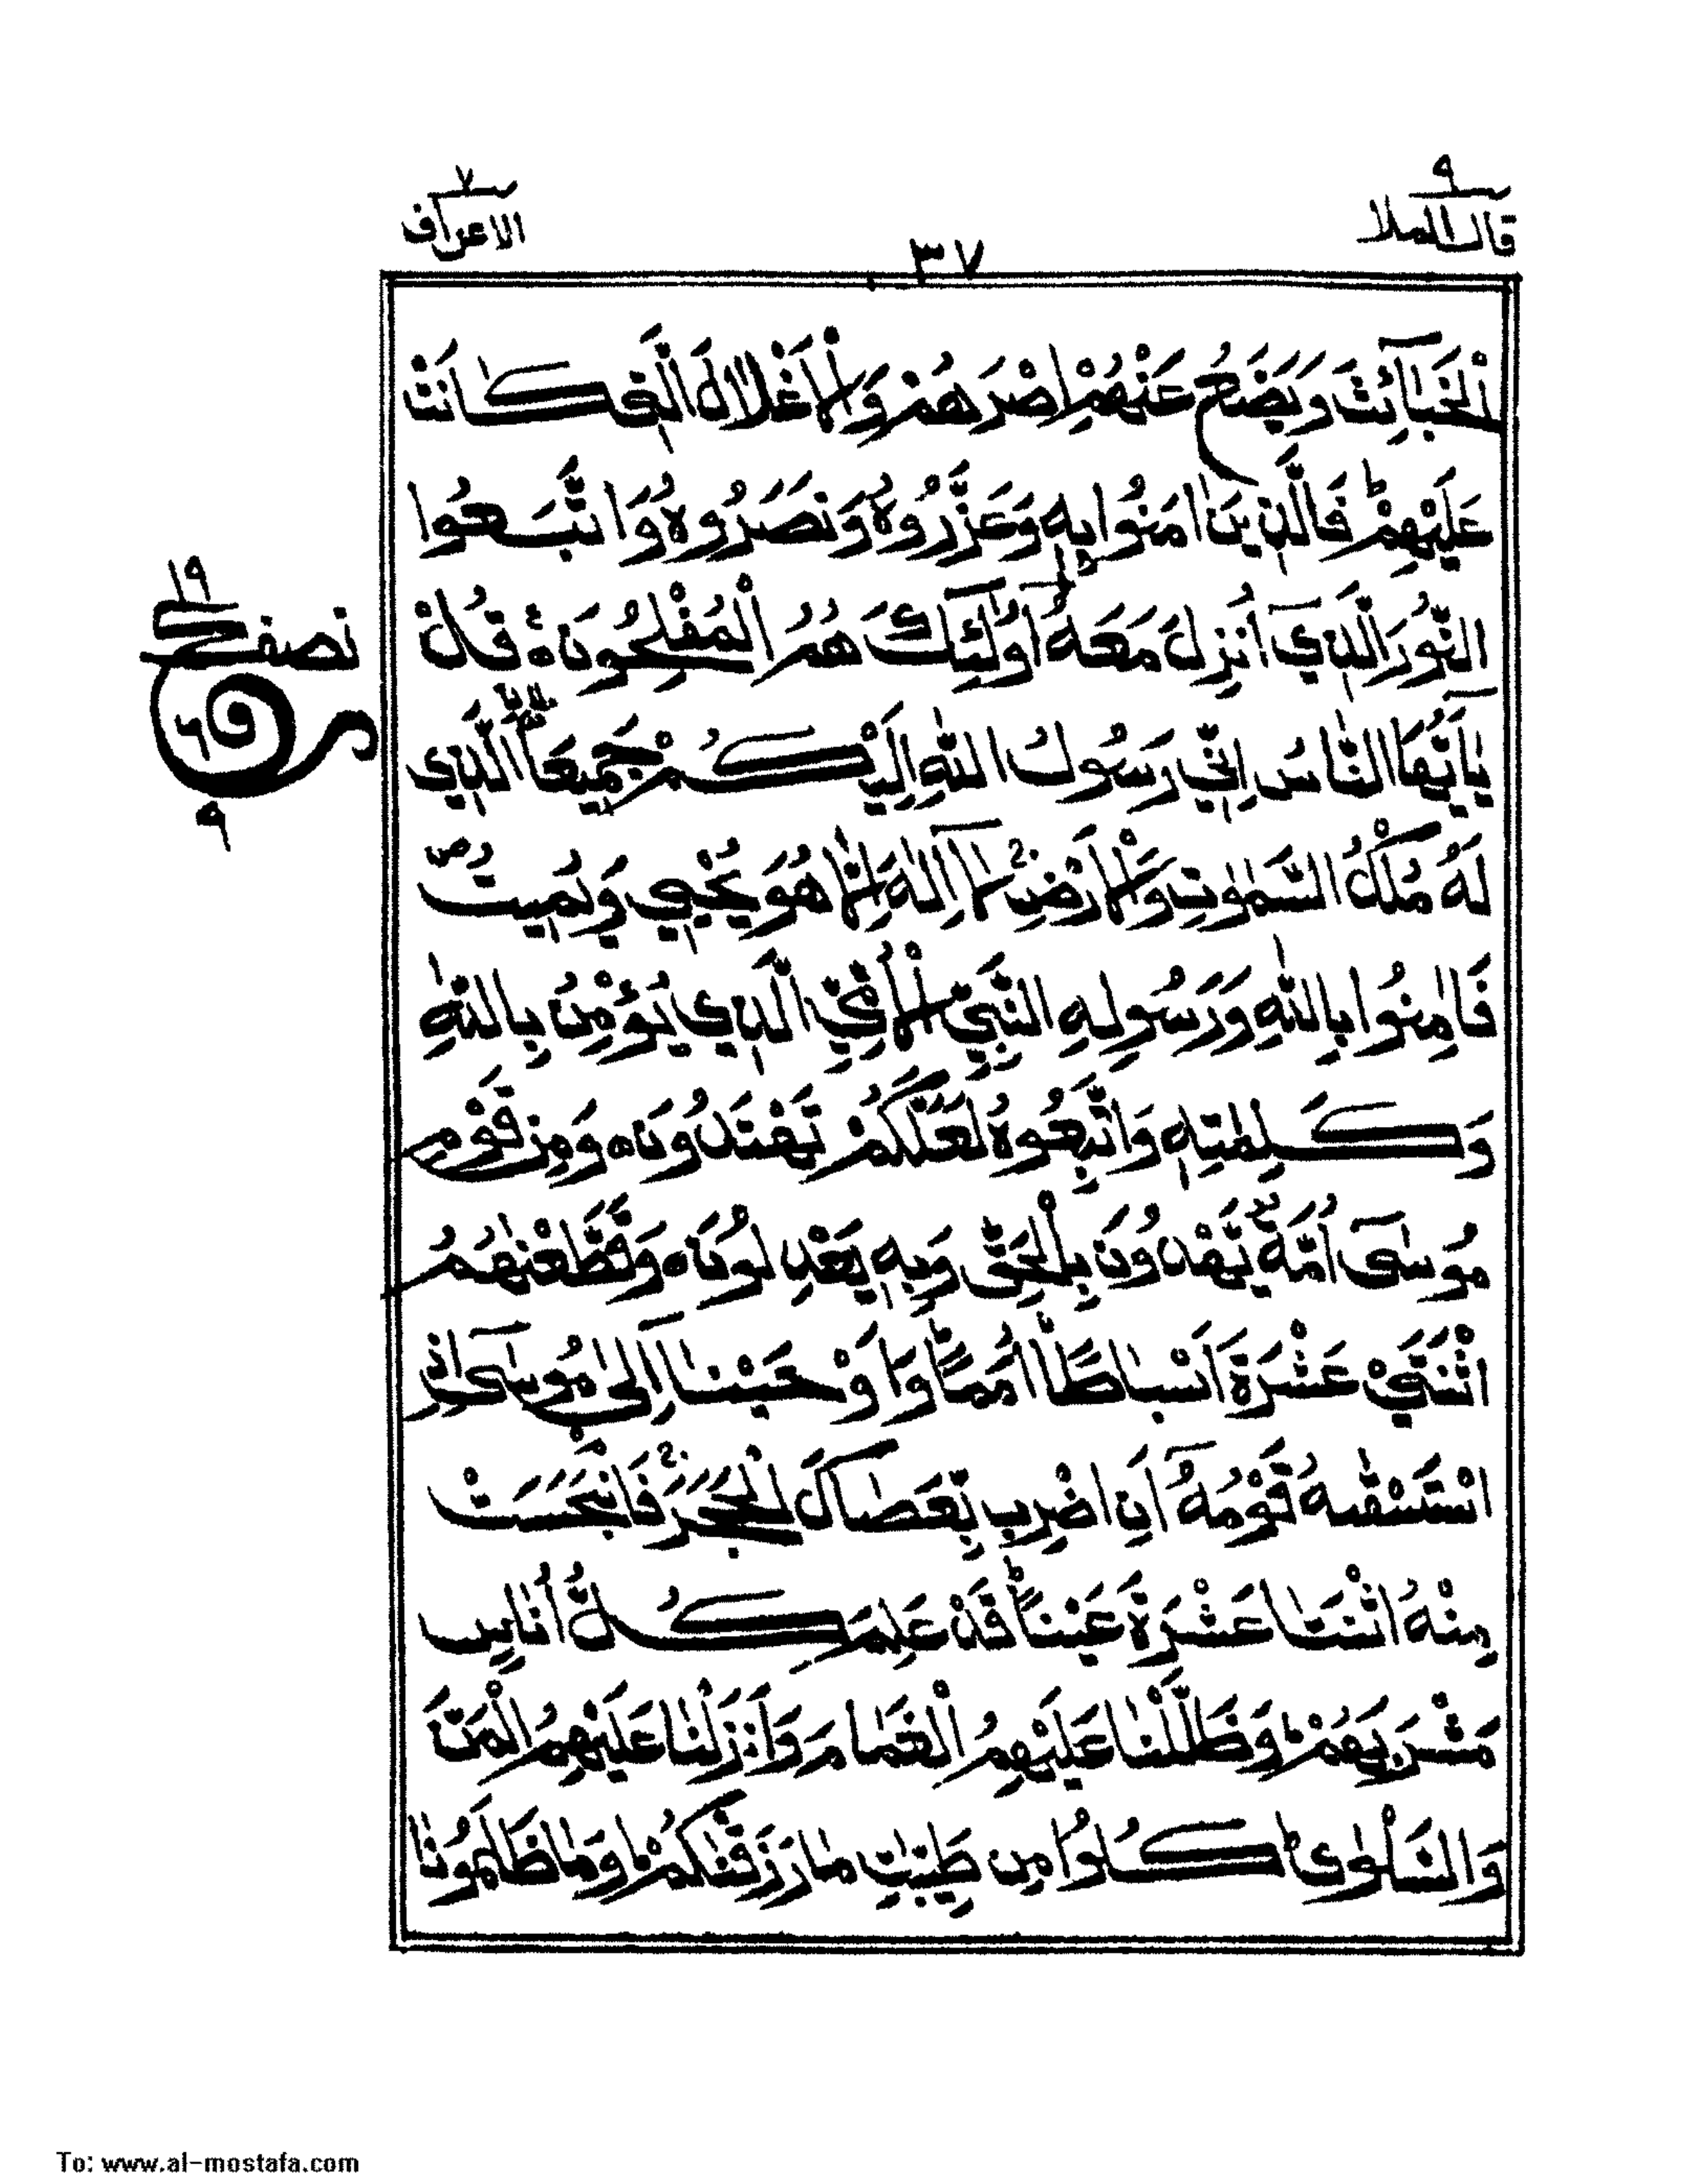 قال الملا ٩
الاعراف ٧
٣٧
الْخَبٰٓائِثَ وَيَضَعُ عَنْهُمْ اِصْرَهُمْ وَالْاَغْلٰلَ الَّتِيْ كَانَتْ
عَلَيْهِمْ ؕ فَالَّذِيْنَ اٰمَنُوْا بِهٖ وَعَزَّرُوْهُ وَنَصَرُوْهُ وَاتَّبَعُوا
النُّوْرَ الَّذِيْٓ اُنْزِلَ مَعَهٗٓ اُولٰٓئِكَ هُمُ الْمُفْلِحُوْنَ ٥ قُلْ
يٰٓاَيُّهَا النَّاسُ اِنِّيْ رَسُوْلُ اللّٰهِ اِلَيْكُمْ جَمِيْعًا الَّذِيْ
لَهٗ مُلْكُ السَّمٰوٰتِ وَالْاَرْضِ ۚ لَآ اِلٰهَ اِلَّا هُوَ يُحْيِ وَيُمِيْتُ ص
فَاٰمِنُوْا بِاللّٰهِ وَرَسُوْلِهِ النَّبِيِّ الْاُمِّيِّ الَّذِيْ يُؤْمِنُ بِاللّٰهِ
وَكَلِمٰتِهٖ وَاتَّبِعُوْهُ لَعَلَّكُمْ تَهْتَدُوْنَ ٥ وَمِنْ قَوْمِ
مُوْسٰٓى اُمَّةٌ يَّهْدُوْنَ بِالْحَقِّ وَبِهٖ يَعْدِلُوْنَ ٥ وَقَطَّعْنٰهُمُ
اثْنَتَيْ عَشْرَةَ اَسْبَاطًا اُمَمًا ؕ وَاَوْحَيْنَآ اِلٰى مُوْسٰٓى اِذِ
اسْتَسْقٰىهُ قَوْمُهٗٓ اَنِ اضْرِبْ بِّعَصَاكَ الْحَجَرَ ۚ فَانْۢبَجَسَتْ
مِنْهُ اثْنَتَا عَشْرَةَ عَيْنًا ؕ قَدْ عَلِمَ كُلُّ اُنَاسٍ
مَّشْرَبَهُمْ ؕ وَظَلَّلْنَا عَلَيْهِمُ الْغَمَامَ وَاَنْزَلْنَا عَلَيْهِمُ الْمَنَّ
وَالسَّلْوٰى ؕ كُلُوْا مِنْ طَيِّبٰتِ مَا رَزَقْنٰكُمْ ؕ وَمَا ظَلَمُوْنَا
١٩
نصف
٦
٩
To: www.al-mostafa.com